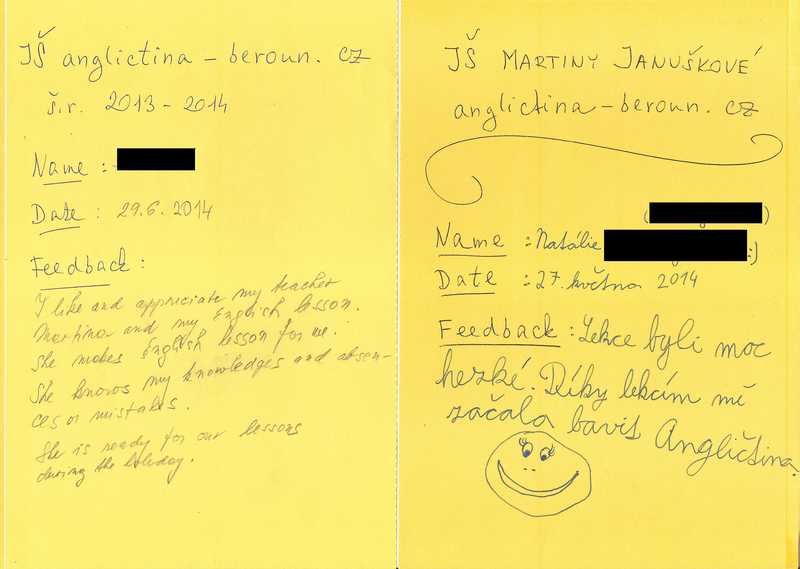 JŠ anglictina – beroun. cz
š.r. 2013 – 2014
Name :
Date : 29.6. 2014
Feedback :
I like and appriciate my teacher
Martina and my English lesson.
She makes English lesson for me.
She knows my knowledges and absen-
ces or mistakes.
She is ready for our lessons
during the holiday.
JŠ MARTINY JANUŠKOVÉ
anglictina – beroun. cz
Name : Natálie :)
Date : 27. května 2014
Feedback : Lekce byli moc
hezké. Díky lekcím mě
začala bavit Angličtina.